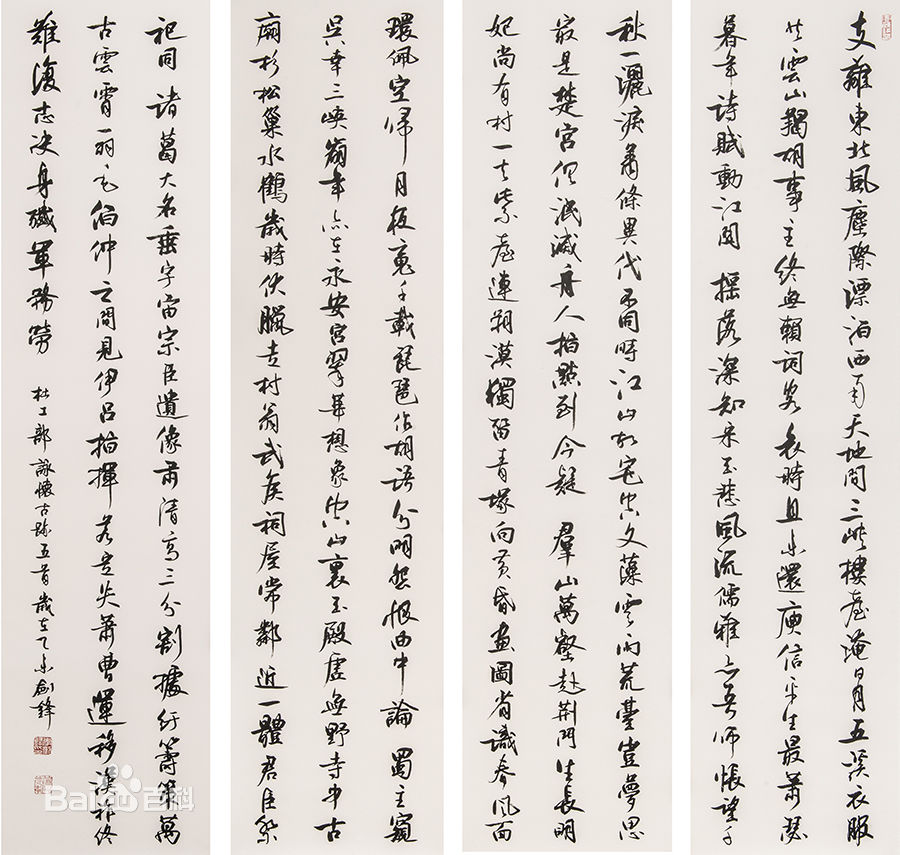 支離東北風塵際漂泊西南天地間三峽樓臺淹日月五溪衣服
共雲山羯胡事主終無賴詞客哀時且未還庾信平生最蕭瑟
暮年詩賦動江關 搖落深知宋玉悲風流儒雅亦吾師悵望千
秋一灑淚蕭條異代不同時江山故宅空文藻雲雨荒臺豈夢思
最是楚宮俱泯滅舟人指點到今疑 羣山萬壑赴荊門生長明
妃尚有村一去紫臺連朔漠獨留青塚向黃昏畫圖省識春風面
環佩空歸月夜魂千載琵琶作胡語分明怨恨曲中論 蜀主窺
吳幸三峽崩年亦在永安宮翠華想象空山裏玉殿虛無野寺中古
廟杉松巢水鶴歲時伏臘走村翁武侯祠屋常鄰近一體君臣祭
祀同 諸葛大名垂宇宙宗臣遺像肅清高三分割據紆籌策萬
古雲霄一羽毛伯仲之間見伊呂指揮若定失蕭曹運移漢祚終
難復志決身殲軍務勞
杜工部詠懷古跡五首歲在乙未劍鋒
Baidu百科